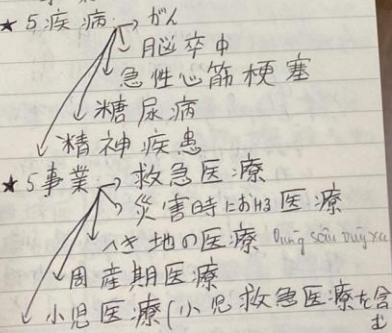 ★5疾病 → がん
脳卒中
急性心筋梗塞
糖尿病
精神疾患
★5事業 → 救急医療
災害時における医療
へき地の医療 Vùng sâu vùng xa
周産期医療
小児医療(小児救急医療を含む